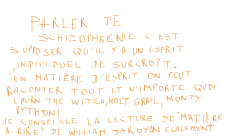 PARLER DE
SCHIZOPHRENIE C'EST
SUPPOSER QU'IL Y A UN ESPRIT
INDIVIDUEL DE SURCROÎT.
EN MATIÈRE D'ESPRIT ON PEUT
RACONTER TOUT ET N'IMPORTE QUOI
(BURN THE WITCH, HOLY GRAIL, MONTY
PYTHON)
JE CONSEILLE LA LECTURE DE "MATIÈRE
À RIRE" DE WILLIAM SAROYAN ÉGALEMENT